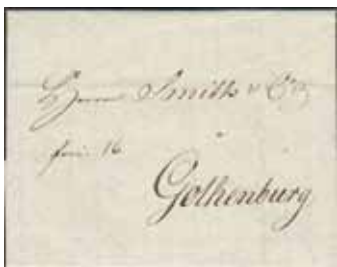 Herrn Smith & Co
Gothenburg